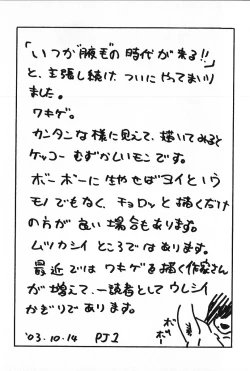 「いつか腋毛の時代が来る!!」
と、主張し続け ついにやってまいり
ました。
ワキゲ。
カンタンな様に見えて、描いてみると
ケッコーむずかしいモンです。
ボーボーに生やせばヨイという
モノでもなく、チョロッと描くだけ
の方が良い場合もあります。
ムツカシイところではあります。
最近ではワキゲを描く作家さん
が増えて、一読者としてウレシイ
かぎりであります。
ボボ
'03.10.14 PJ1